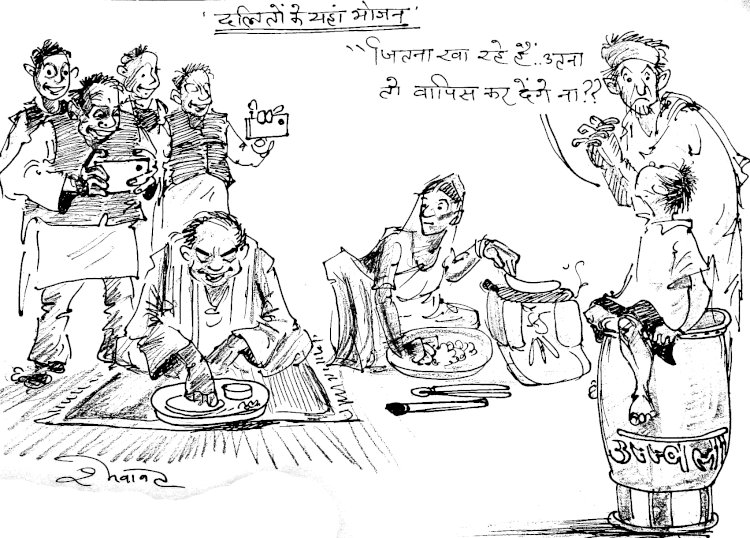 'दलितों के यहां भोजन'
“जितना खा रहे हैं..उतना
तो वापिस कर देंगे ना??
उज्ज्वला